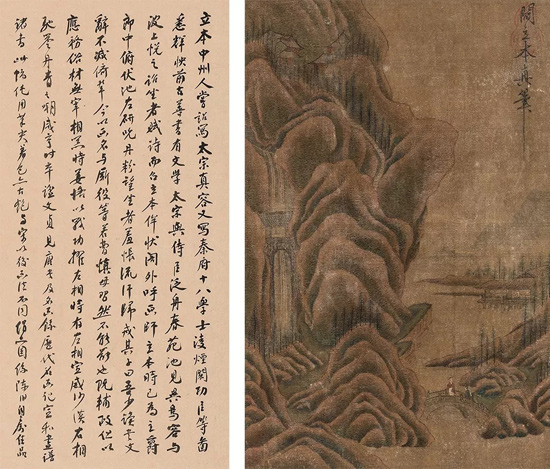 閻立本真筆
立本中州人嘗詔寫太宗真容又寫秦府十八學士凌煙閣功臣等圖
悉輝映前古尋書有文學太宗與侍臣泛舟春苑池見異鳥容與
波上悅之詔坐者賦詩而召立本侔狀閣外呼畫師立本時已為主爵
郎中俯伏池左研吮丹粉望坐者羞悵流汗歸戒其子曰吾少讀書文
辭不減儕輩今以畫名與廝役等若曹慎毋習然不能罷也既輔政但以
應務俗材無宰相器時姜恪以戰功擢左相時有左相宣威沙漠右相
馳譽丹青之嘲咸亨時卒諡文貞見唐書及名畫錄歷代名畫記宣和畫譜
諸書此幀純用着色亦古艷與宋以後畫法不同佳品